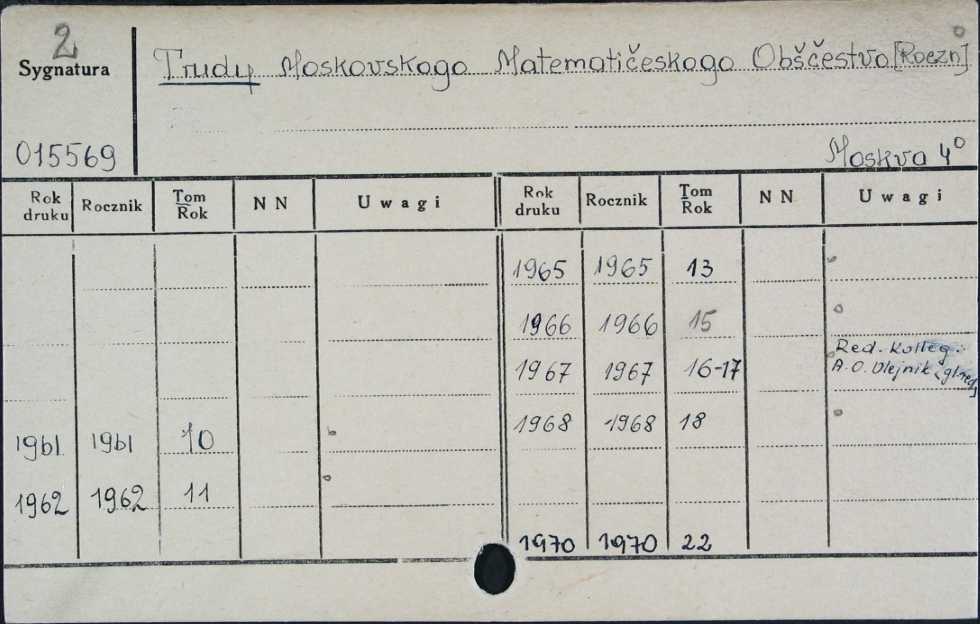 2
Sygnatura
Trudy Moskovskogo Matematičeskogo Obščestva [Roczn]
015569
Moskva 4°
Rok druku Rocznik Tom Rok NN Uwagi Rok druku Rocznik Tom Rok NN Uwagi
1965 1965 13
1966 1966 15
Red. Kolleg.:
1967 1967 16-17 A.O. Olejnik
1968 1968 18
1961 1961 10
1962 1962 11
1970 1970 22